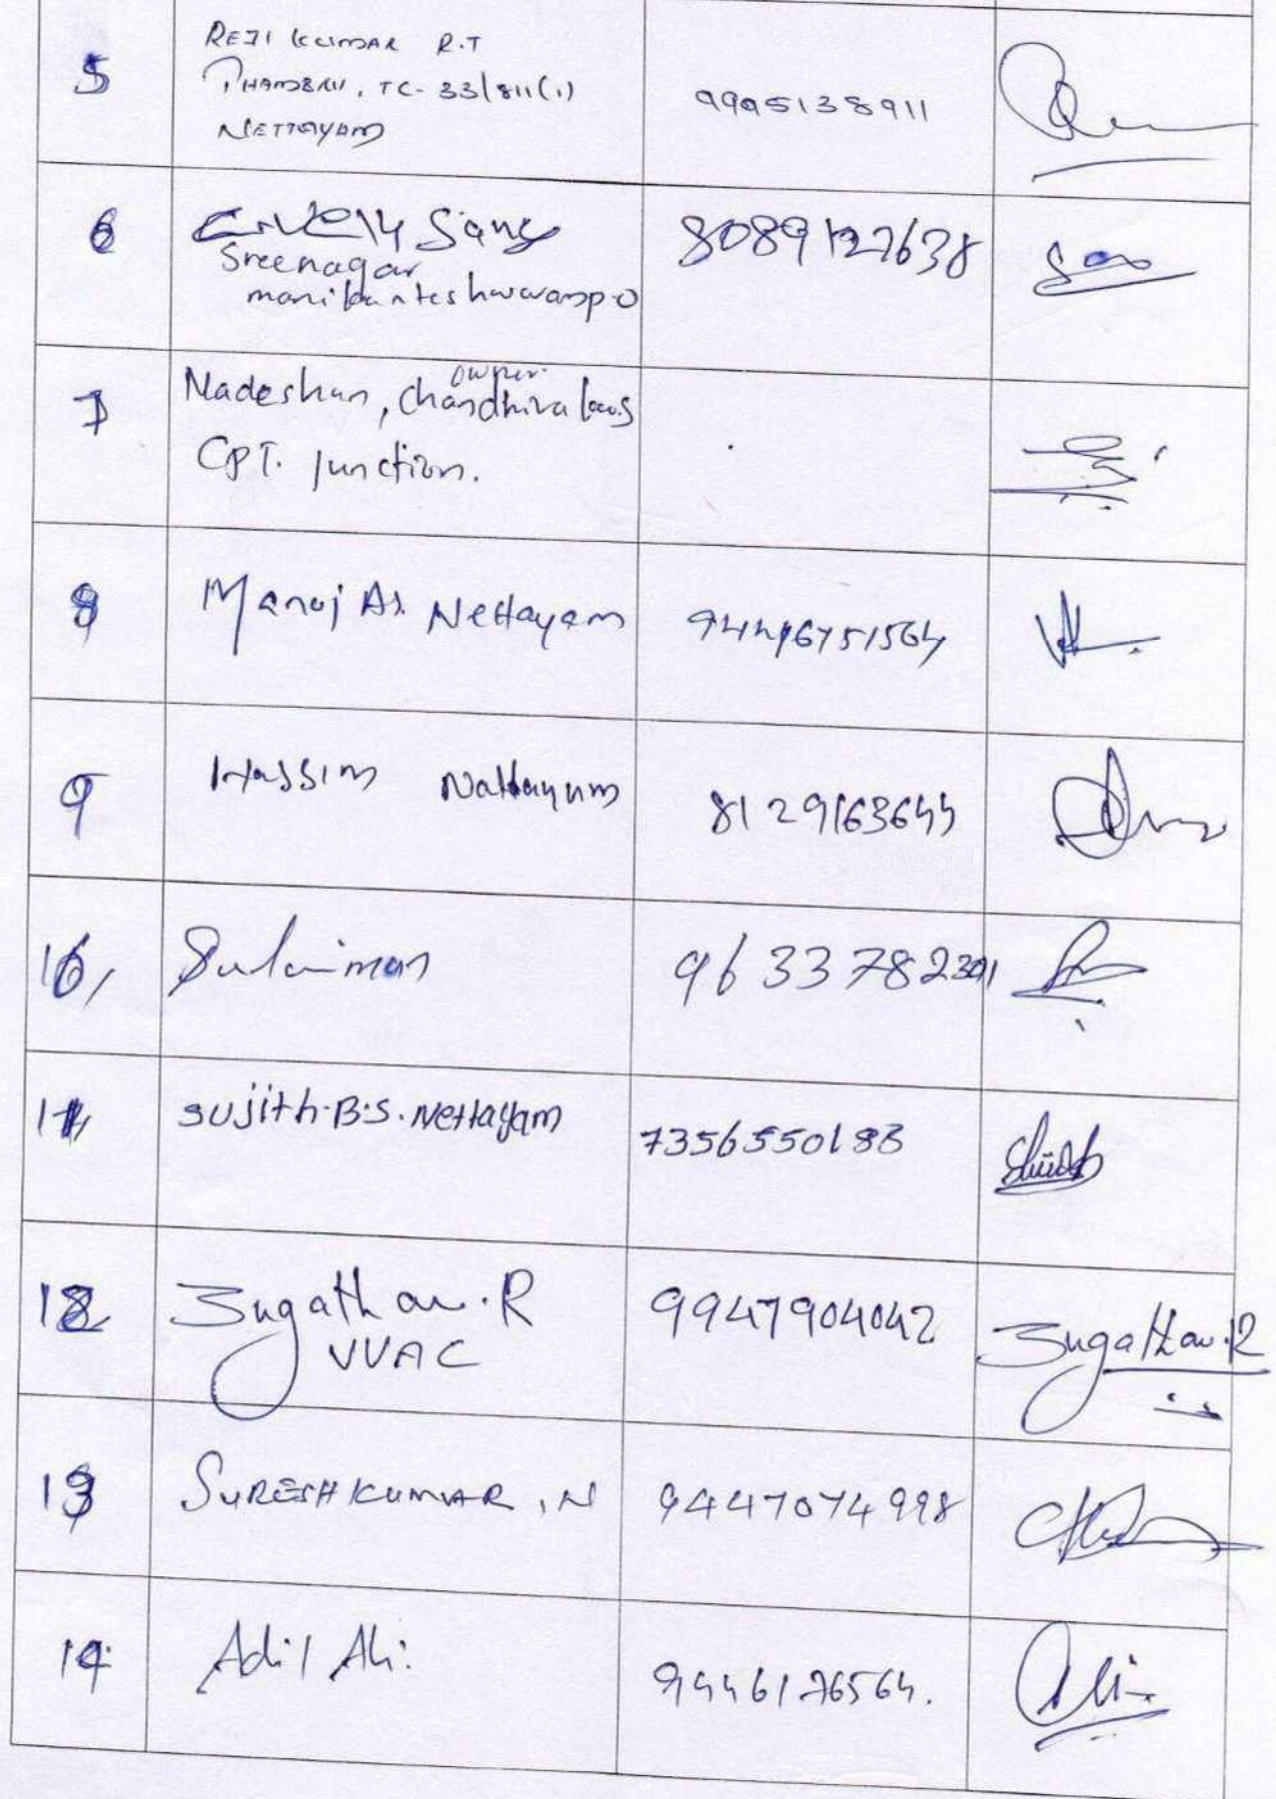 5
REJI KUMAR R.T
THAMBRU, TC-33/811(1)
NETTAYAM
9995138911
6
Sany
Sreenagar
manikanteshwaram p.o
8089127638
7
owner
Nadeshan, Chandhira
CPT. Junction.
8
Manoj As. Nettayam
9
Hassim Nattayum
8129163644
10,
Sulaiman
9633782391
11,
sujith.B.S. Nettayam
7356550183
12
Sugathan.R
VVAC
9947904042
Sugathan.R
13
SURESH KUMAR, N
9447074998
14
Adil Ali.
9446176564.
Ali